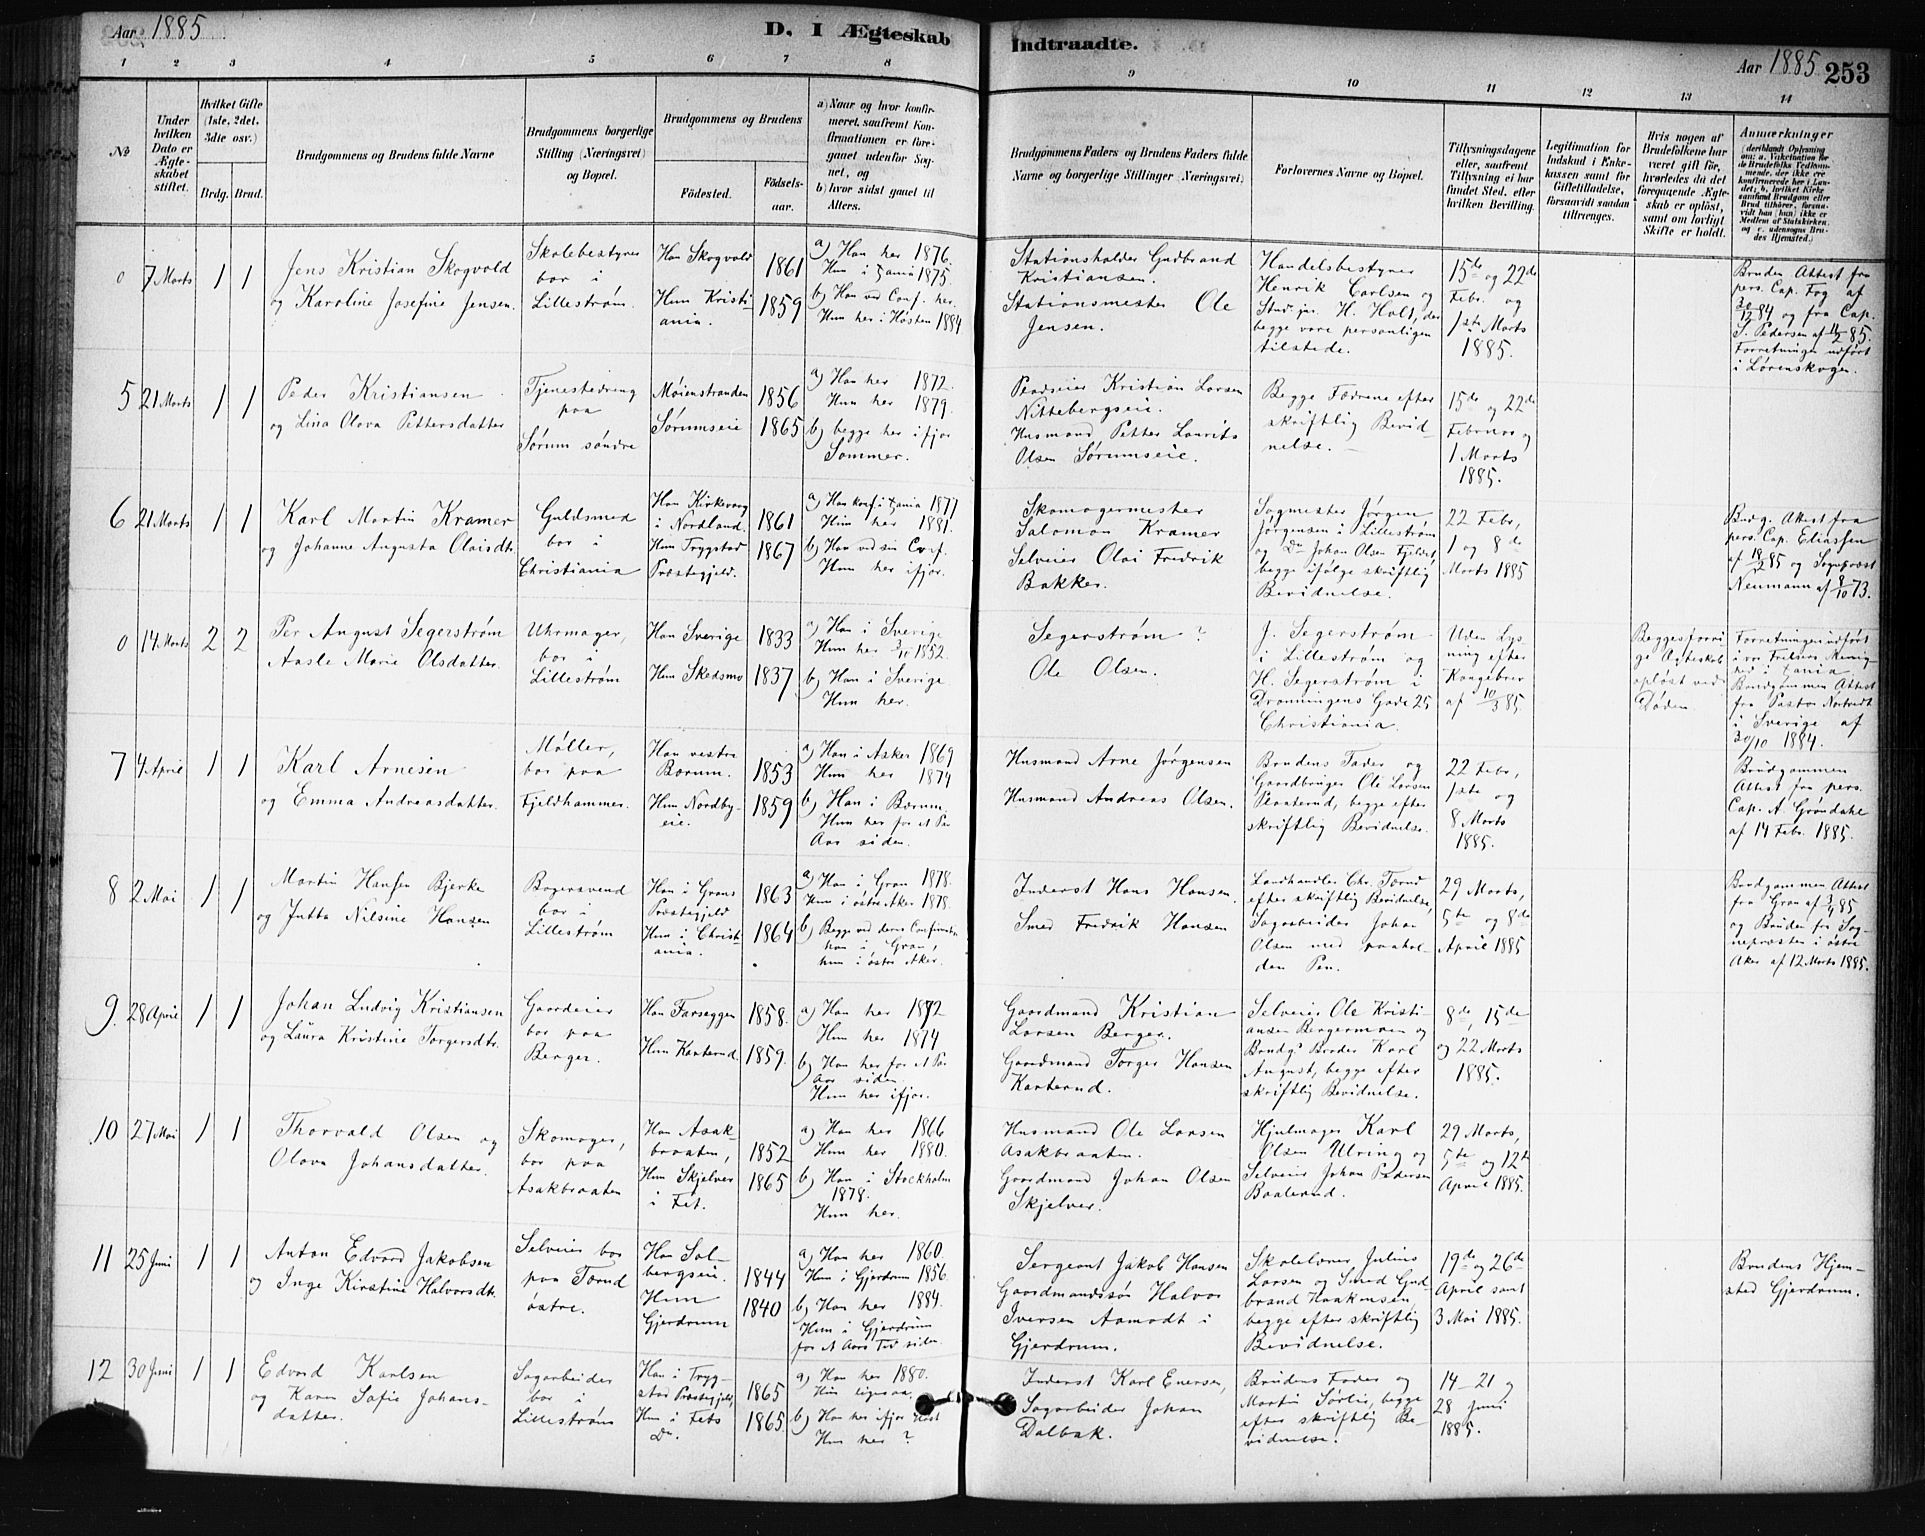 Aar 1885
D. I Ægteskab Indtraadte.
Aar 1885
253
1 2 3 4 5 6 7 8
9 10 11 12 13 14
No
Under hvilken Dato er Ægteskabet stiftet.
Hvilket Gifte (1ste, 2det, 3die osv.)
Brdg. Brud.
Brudgommens og Brudens fulde Navne
Brudgommens borgerlige Stilling (Næringsvei) og Bopæl.
Brudgommens og Brudens
Fødested.
Fødselsaar.
a) Naar og hvor konfirmeret, saafremt Konfirmationen er foregaaet udenfor Sognet, og
b) hvor sidst gaaet til Alters.
Brudgommens Faders og Brudens Faders fulde Navne og borgerlige Stillinger (Næringsvei)
Forlovernes Navne og Bopæl.
Tillysningsdagene eller, saafremt Tillysning ei har fundet Sted, efter hvilken Bevilling.
Legitimation for Indskud i Enkekassen samt for Giftetilladelse, forsaavidt saadan tiltrænges.
Hvis nogen af Brudefolkene har været gift før, hvorledes da det foregaaende Ægteskab er opløst, samt om lovligt Skifte er holdt.
Anmærkninger
0
7 Marts
1 1
Jens Kristian Skogvold
og Karoline Josefine Jensen.
Skolebestyrer
bor i
Lillestrøm.
Han Skogvold
Hun Kristiania.
1861
1859
a) Han her 1876.
Hun i Xania 1875.
b) Han ved Conf. her.
Hun her i Høsten 1884
Stationsholder Gudbrand
Kristiansen.
Stationsmester Ole
Jensen.
Handelsbestyrer
Henrik Carlsen og
Stud. jur. H. Holt, der
begge vare personligen
tilstede.
15de og 22de
Febr. og
1ste Marts
1885.
Bruden Attest fra
pers. Cap. Fog af
30/12 84 og fra Cap.
S. Pedersen af 11/2 85.
Forretningen udført
i Lørenskogen.
5
21 Marts
1 1
Peder Kristiansen
og Lina Olava Pettersdatter
Tjenestedreng
paa
Sørum søndre
Møienstranden
Sørumseie
1856
1865
a) Han her 1872.
Hun her 1879.
b) begge her ifjor
Sommer.
Pladseier Kristian Larsen
Nittebergseie.
Husmand Petter Laurits
Olsen Sørumseie.
Begge Fædrene efter
skriftlig Bevidnelse.
15de og 22de
Februar og
1 Marts
1885.
6
21 Marts
1 1
Karl Martin Kramer
og Johanne Augusta Olaisdtr.
Guldsmed
bor i
Christiania
Han Kirkevaag
i Nordland.
Hun Trygstad
Præstegjeld.
1861
1867
a) Han konf. i Xania 1877
Hun her 1881.
b) Han ved sin Conf.
Hun her ifjor.
Skomagermester
Salomon Kramer
Selveier Olai Fredrik
Bakker.
Sagmester Jørgen
Jørgensen i Lillestrøm
og Do Johan Olsen Fjeldet,
begge ifølge skriftlig
Bevidnelse.
22 Febr,
1 og 8de
Marts 1885
Brudg. Attest fra
pers. Cap. Eliassen
af 18/2 85 og Sogneprest
Neumann af 8/10 73.
0
14 Marts
2 2
Per August Segerstrøm
Aasle Marie Olsdatter.
Uhrmager,
bor i
Lillestrøm
Han Sverige
Hun Skedsmo
1833
1837
a) Han i Sverige
Hun her 1852.
b) Han i Sverige
Hun her.
Segerstrøm ?
Ole Olsen.
J. Segerstrøm
i Lillestrøm og
H. Segerstrøm i
Dronningens Gade 25
Christiania.
Uden Lysning efter
Kongebrev
af 10/3 85.
Begges forrige Ægteskab
opløst ved
Døden.
Forretningen udført
i vor Frelsers Menighed i Xania
Brudgommen Attest
fra Pastor
i Sverige af
30/10 1884.
7
4 April
1 1
Karl Arnesen
og Emma Andreasdatter.
Møller,
bor paa
Fjeldhammer.
Han vestre
Bærum.
Hun Nordbyeie.
1853
1859
a) Han i Asker 1869
Hun her 1874
b) Han i Bærum
Hun her for et Par
Aar siden.
Husmand Arne Jørgensen
Husmand Andreas Olsen.
Brudens Fader og
Gaardbruger Ole Larsen
begge efter
skriftlig Bevidnelse.
22 Febr,
1ste og
8 Marts
1885.
Brudgommen
Attest fra pers.
Cap. A Grøndahl
af 14 Febr. 1885.
8
2 Mai
1 1
Martin Hansen Bjerke
og Jutta Nilsine Hansen
Bagersvend
bor i
Lillestrøm
Han i Grans
Præstegjeld
Hun i Christiania.
1863
1864
a) Han i Gran 1878.
Hun i østre Aker 1878.
b) Begge ved deres Confirmation
han i Gran,
hun i østre Aker.
Inderst Hans Hansen.
Smed Fredrik Hansen
Landhandler Chr. Torud
efter skriftlig Bevidnelse,
Sagarbeider Johan
Olsen med paaholden Pen.
29 Marts,
5te og 8de
April 1885
Brudgommen Attest
fra Gran af 3/4 85
og Bruden fra Sognepresten i østre
Aker af 12 Marts 1885.
9.
28 April
1 1
Johan Ludvig Kristiansen
og Laura Kristine Torgersdtr.
Gaardeier
bor paa
Berger.
Han Farseggen
Hun Kauterud.
1858.
1859.
a) Han her 1872
Hun her 1874
b) Han her for et Par
Aar siden
Hun her ifjor.
Gaardmand Kristian
Larsen Berger.
Gaardmand Torger Hansen
Kauterud.
Selveier Ole Kristiansen Bergermoen og
Brudg.s Broder Karl
August, begge efter
skriftlig Bevidnelse.
8de, 15de
og 22 Marts
1885.
10
27 Mai
1 1
Thorvald Olsen og
Olava Johansdatter.
Skomager,
bor paa
Asakbraaten
Han Asakbraaten,
Hun Skjelver
i Fet.
1852
1865
a) Han her 1866
Hun her 1880.
b) Han i Stockholm
1878.
Hun her.
Husmand Ole Larsen
Asakbraaten.
Gaardmand Johan Olsen
Skjelver.
Hjulmager Karl
Olsen Ulring og
Selveier Johan Pedersen
Baalerud.
29 Marts,
5te og 12te
April 1885.
11
25 Juni
1 1
Anton Edvard Jakobsen
og Inge Kirstine Halvorsdtr.
Selveier bor
paa Torud
østre.
Han Solbergseie.
Hun
Gjerdrum
1844
1840
a) Han her 1860.
Hun i Gjerdrum 1856.
b) Han her 1884.
Hun i Gjerdrum
for et Aars Tid siden
Sergeant Jakob Hansen
Gaardmandssøn Halvor
Iversen Aamodt i
Gjerdrum.
Skolelærer Julius
Larsen og Smed Gudbrand Haakonsen
begge efter skriftlig
Bevidnelse.
19de og 26de
April samt
3 Mai 1885.
Brudens Hjemsted Gjerdrum.
12
30 Juni
1 1
Edvard Karlsen
og Karen Sofie Johansdatter.
Sagarbeider
bor i
Lillestrøm
Han i Trygstad Præstegjeld,
Hun i Fets
Do.
1865
1865.
a) Han her 1880.
Hun ligesaa.
b) Han her ifjor Høst
Hun her ?
Inderst Karl Enersen,
Sagarbeider Johan
Dalbak.
Brudens Fader og
Martin Sørlie, begge
efter skriftlig Bevidnelse.
14 – 21 og
28 Juni
1885.